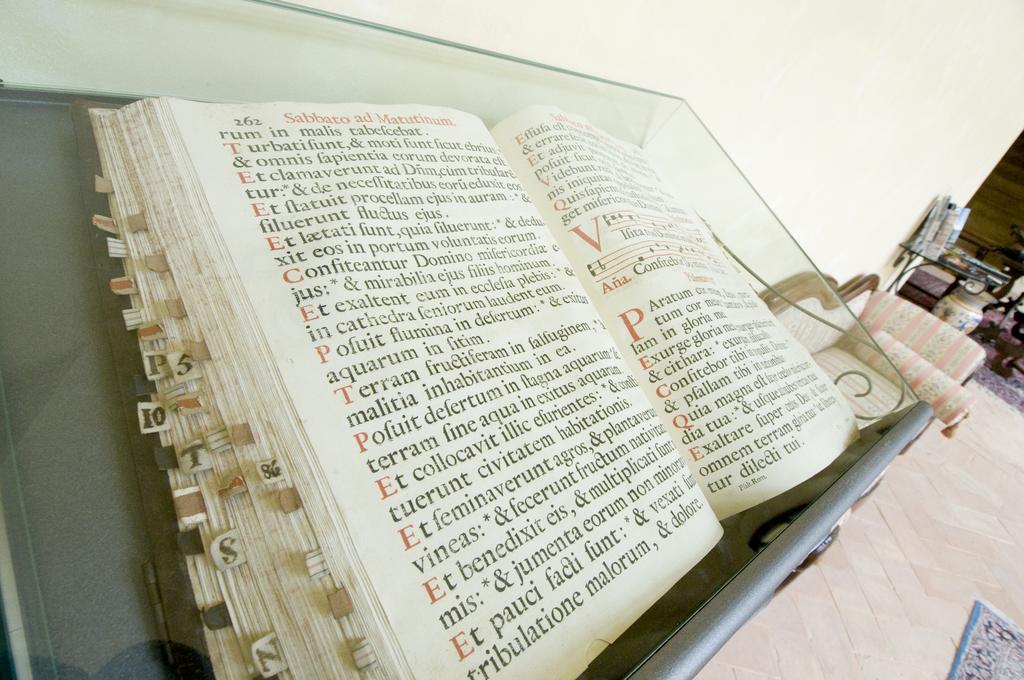 262 Sabbato ad Matutinum.
rum in malis tabeſcebat.
Turbati ſunt, & moti ſunt ſicut ebrius
& omnis ſapientia eorum devorata eſt
Et clamaverunt ad Dñm, cùm tribularẽ
tur: * & de neceſſitatibus eorũ eduxit eos
Et ſtatuit procellam ejus in auram: * &
ſiluerunt fluctus ejus.
Et lætati ſunt, quia ſiluerunt: * & dedu
xit eos in portum voluntatis eorum.
Confiteantur Domino miſericordiæ e
jus: * & mirabilia ejus filiis hominum
Et exaltent eum in eccleſia plebis: * &
in cathedra ſeniorum laudent eum.
Poſuit flumina in deſertum: * & exitus
aquarum in ſitim.
Terram fructiferam in ſalſuginem, *
malitia inhabitantium in ea.
Poſuit deſertum in ſtagna aquarum: *
terram ſine aqua in exitus aquarum
Et collocavit illic eſurientes: *
tuerunt civitatem habitationis.
Et ſeminaverunt agros, & plantaverunt
vineas: * & fecerunt fructum nativitatis
Et benedixit eis, & multiplicati ſunt
mis: * & jumenta eorum non minoravit
Et pauci facti ſunt: * & vexati ſunt
tribulatione malorum, & dolore
Effuſa eſt
& errare
Et adjuvit
poſuit ſicut
Videbunt
nis iniquitas
Quis ſapiens
get miſericordias
Viſita
Aña. Confitebor
Paratum cor
tum cor meum
lam in gloria
Exurge gloria mea
& cithara: * exurgam
Confitebor tibi in
& pſallam tibi in nationibus
Quia magna eſt ſuper
dia tua: * & uſque ad nubes
Exaltare ſuper cælos Deus,
omnem terram gloria tua: * ut liberen
tur dilecti tui.
Pſalt. Rom.
P5
10
T
&
S
Z